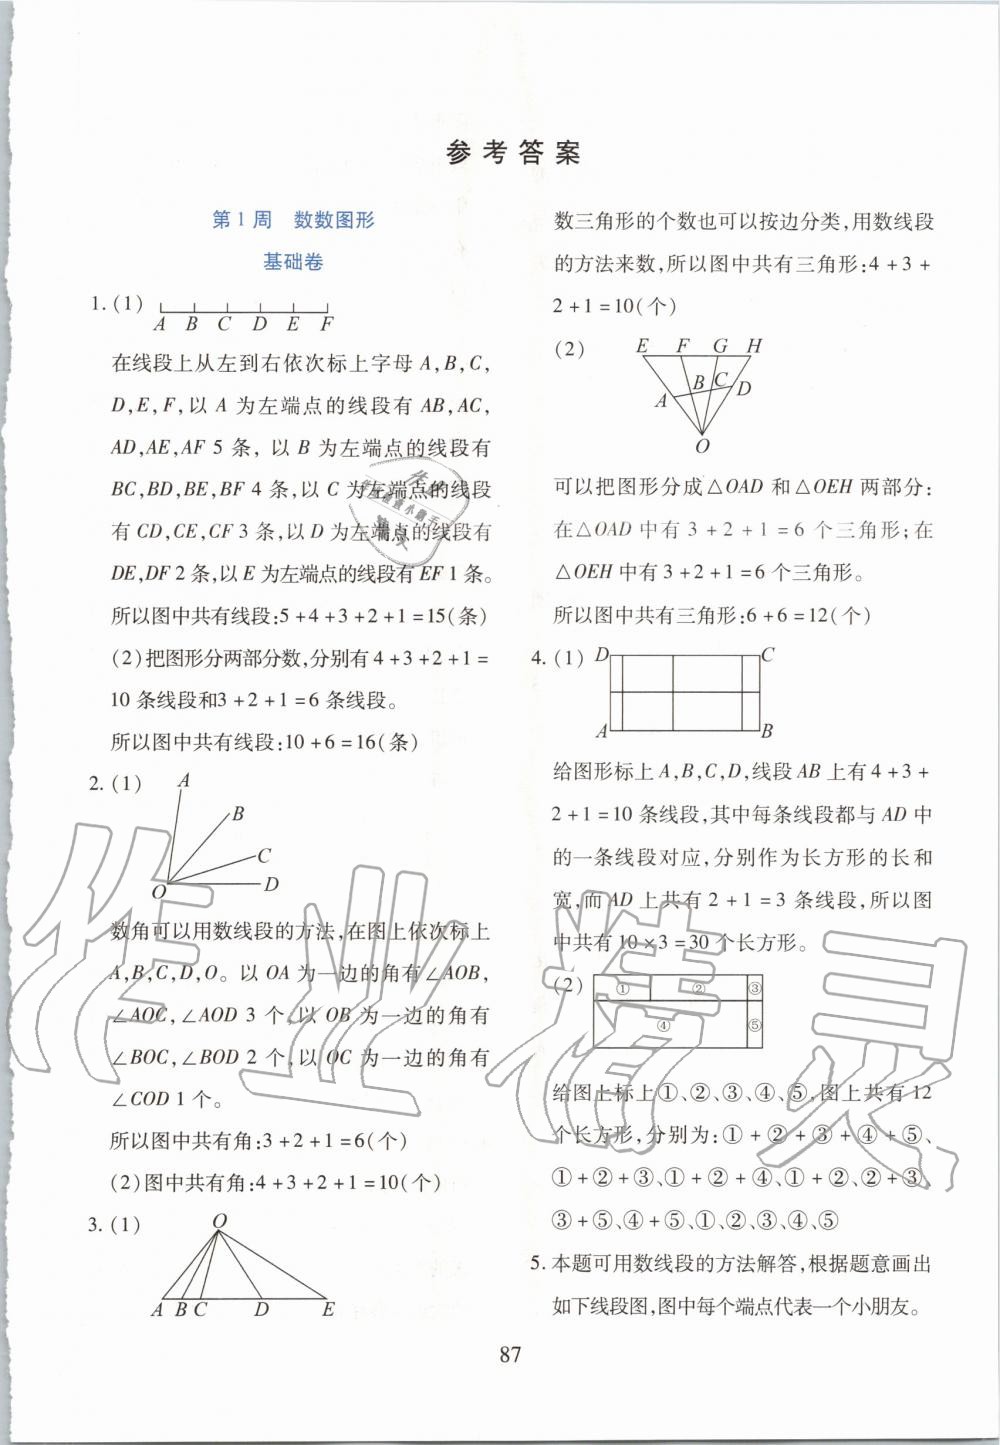 参考答案
第1周 数数图形
基础卷
1.(1)
A B C D E F
在线段上从左到右依次标上字母 A,B,C,
D,E,F,以 A 为左端点的线段有 AB,AC,
AD,AE,AF 5 条, 以 B 为左端点的线段有
BC,BD,BE,BF 4 条,以 C 为左端点的线段
有 CD,CE,CF 3 条,以 D 为左端点的线段有
DE,DF 2 条,以 E 为左端点的线段有 EF 1 条。
所以图中共有线段:5+4+3+2+1=15(条)
(2)把图形分两部分数,分别有 4+3+2+1=
10 条线段和3+2+1=6 条线段。
所以图中共有线段:10+6=16(条)
2.(1)
A
B
C
O
D
数角可以用数线段的方法,在图上依次标上
A,B,C,D,O。以 OA 为一边的角有∠AOB,
∠AOC,∠AOD 3 个,以 OB 为一边的角有
∠BOC,∠BOD 2 个,以 OC 为一边的角有
∠COD 1 个。
所以图中共有角:3+2+1=6(个)
(2)图中共有角:4+3+2+1=10(个)
3.(1)
O
A B C D E
数三角形的个数也可以按边分类,用数线段
的方法来数,所以图中共有三角形:4+3+
2+1=10(个)
(2)
E F G H
A B C D
O
可以把图形分成△OAD 和△OEH 两部分:
在△OAD 中有 3+2+1=6 个三角形;在
△OEH 中有 3+2+1=6 个三角形。
所以图中共有三角形:6+6=12(个)
4.(1)
D C
A B
给图形标上 A,B,C,D,线段 AB 上有 4+3+
2+1=10 条线段,其中每条线段都与 AD 中
的一条线段对应,分别作为长方形的长和
宽,而 AD 上共有 2+1=3 条线段,所以图
中共有 10×3=30 个长方形。
(2)
① ② ③
④ ⑤
给图上标上①、②、③、④、⑤,图上共有 12
个长方形,分别为:①+②+③+④+⑤、
①+②+③、①+②+④、①+②、②+③、
③+⑤、④+⑤、①、②、③、④、⑤
5. 本题可用数线段的方法解答,根据题意画出
如下线段图,图中每个端点代表一个小朋友。
87
作业精灵